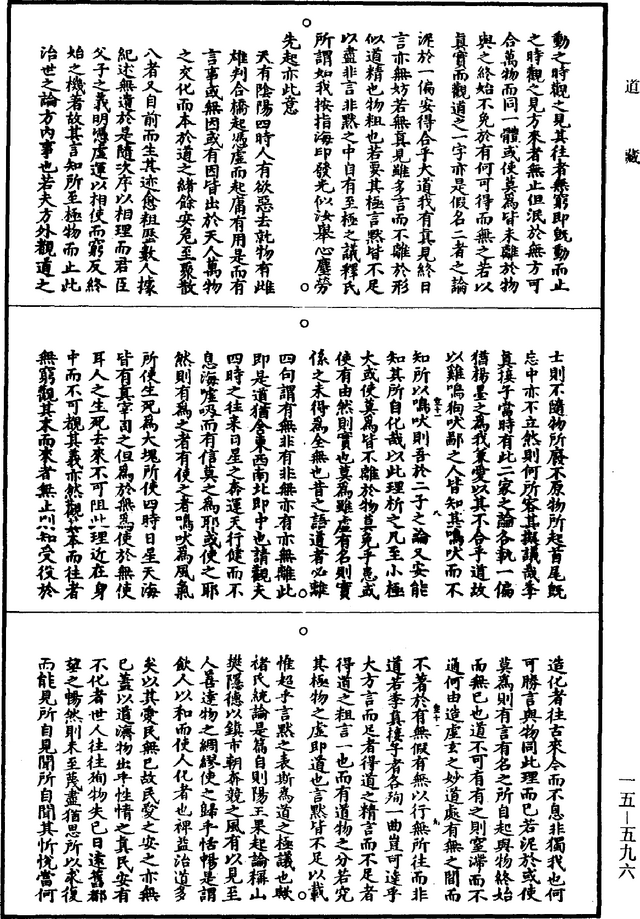 道藏
動之時觀之見其往者無窮即旣動而止
之時觀之見方來者無止但泯於無方可
合萬物而同一體或使莫爲皆未離於物
與之終始不免於有何可得而無之若以
真實而觀道之一字亦是假名二者之論
泥於一偏安得合乎大道我有真見終日
言亦無妨若無真見雖多言而不離於形
似道精也物粗也若要其極言黙皆不足
以盡非言非黙之中自有至極之議釋氏
所謂如我按指海印發光似汝舉心塵勞
先起亦此意
天有陰陽四時人有欲惡去就物有雌
雄判合橋起憑虛而起庸有用是而有
言事或無因或有因皆出於天人萬物
之交化而本於道之緒餘安危至聚散
八者又自前而生其迹愈粗歴數人據
紀述無遺於是隨次序以相理而君臣
父子之義明憑虛運以相使而窮反終
始之機著故其言知所至極物而止此
治世之論方內事也若夫方外觀道之
士則不隨物所廢不原物所起首尾旣
忘中亦不立然則何所容其擬議哉季
真接子當時有此二家之論各執一偏
猶楊墨之爲我兼愛以其不合乎道故
以雞鳴狗吠鄙之人皆知其鳴吠而不
知所以鳴吠則吾於二子之論又安能
知其所自化哉以此理析之凡至小極
大或使莫爲皆不離於物莫免乎患或
使有由然則實也莫爲雖虛有名則實
係之未得爲全無也昔之語道者必離
四句謂有無非有非無亦有亦無離此
即是道猶舍東西南北即中也請觀夫
四時之往來日星之奔運天行健而不
息海噓吸而有信莫之爲耶或使之耶
然則有爲之者有使之者鳴吠爲風氣
所使生死爲大塊所使四時日星天海
皆有真宰司之但爲於無爲使於無使
耳人之生死去來不可阻此理近在身
中而不可觀其義亦然觀其本而往者
無窮觀其末而來者無止則知受役於
造化者往古來今而不息非獨我也何
可勝言與物同此理而已若泥於或使
莫爲則有言有名之所自起與物終始
而無已也道不可有有之則窒滯而不
通何由造虛玄之妙道處有無之間而
不著於有無假有無以行無所往而非
道若季真接子者各殉一曲豈可達乎
大方言而足者得道之精言而不足者
得道之粗言一也而有道物之分若究
其極物之虛即道也言黙皆不足以載
惟超乎言黙之表斯爲道之極議也歟
褚氏統論是篇自則陽王果起論稱山
樊隱德以鎮市朝奔競之風有以見至
人善達物之綢繆使之歸乎恬暢是謂
飲人以和而使人化者也裨益治道多
矣以其愛民無已故民愛之安之亦無
已蓋以道濟物出乎性情之真民安有
不化者世人往往殉物失已日遠舊都
望之暢然則未至蔑盡猶思所以求復
而能見所自見聞所自聞其忻恱當何
一五—五九六